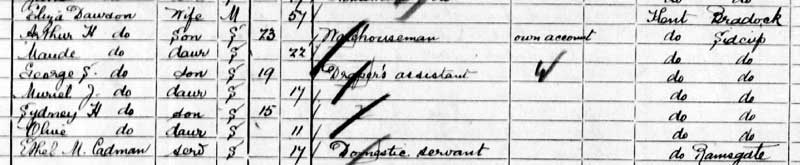 Eliza Dawson Wife M 57 Kent Braddock
Arthur H do Son S 23 Warehouseman own account do Sidcup
Maude do daur S 22 do do
George S. do son S 19 Draper's assistant W do do
Muriel J. do daur S 17 do do
Sydney H do son S 15 do do
Olive do daur S 11 do do
Ethel M. Cadman serv S 17 Domestic servant do Ramsgate